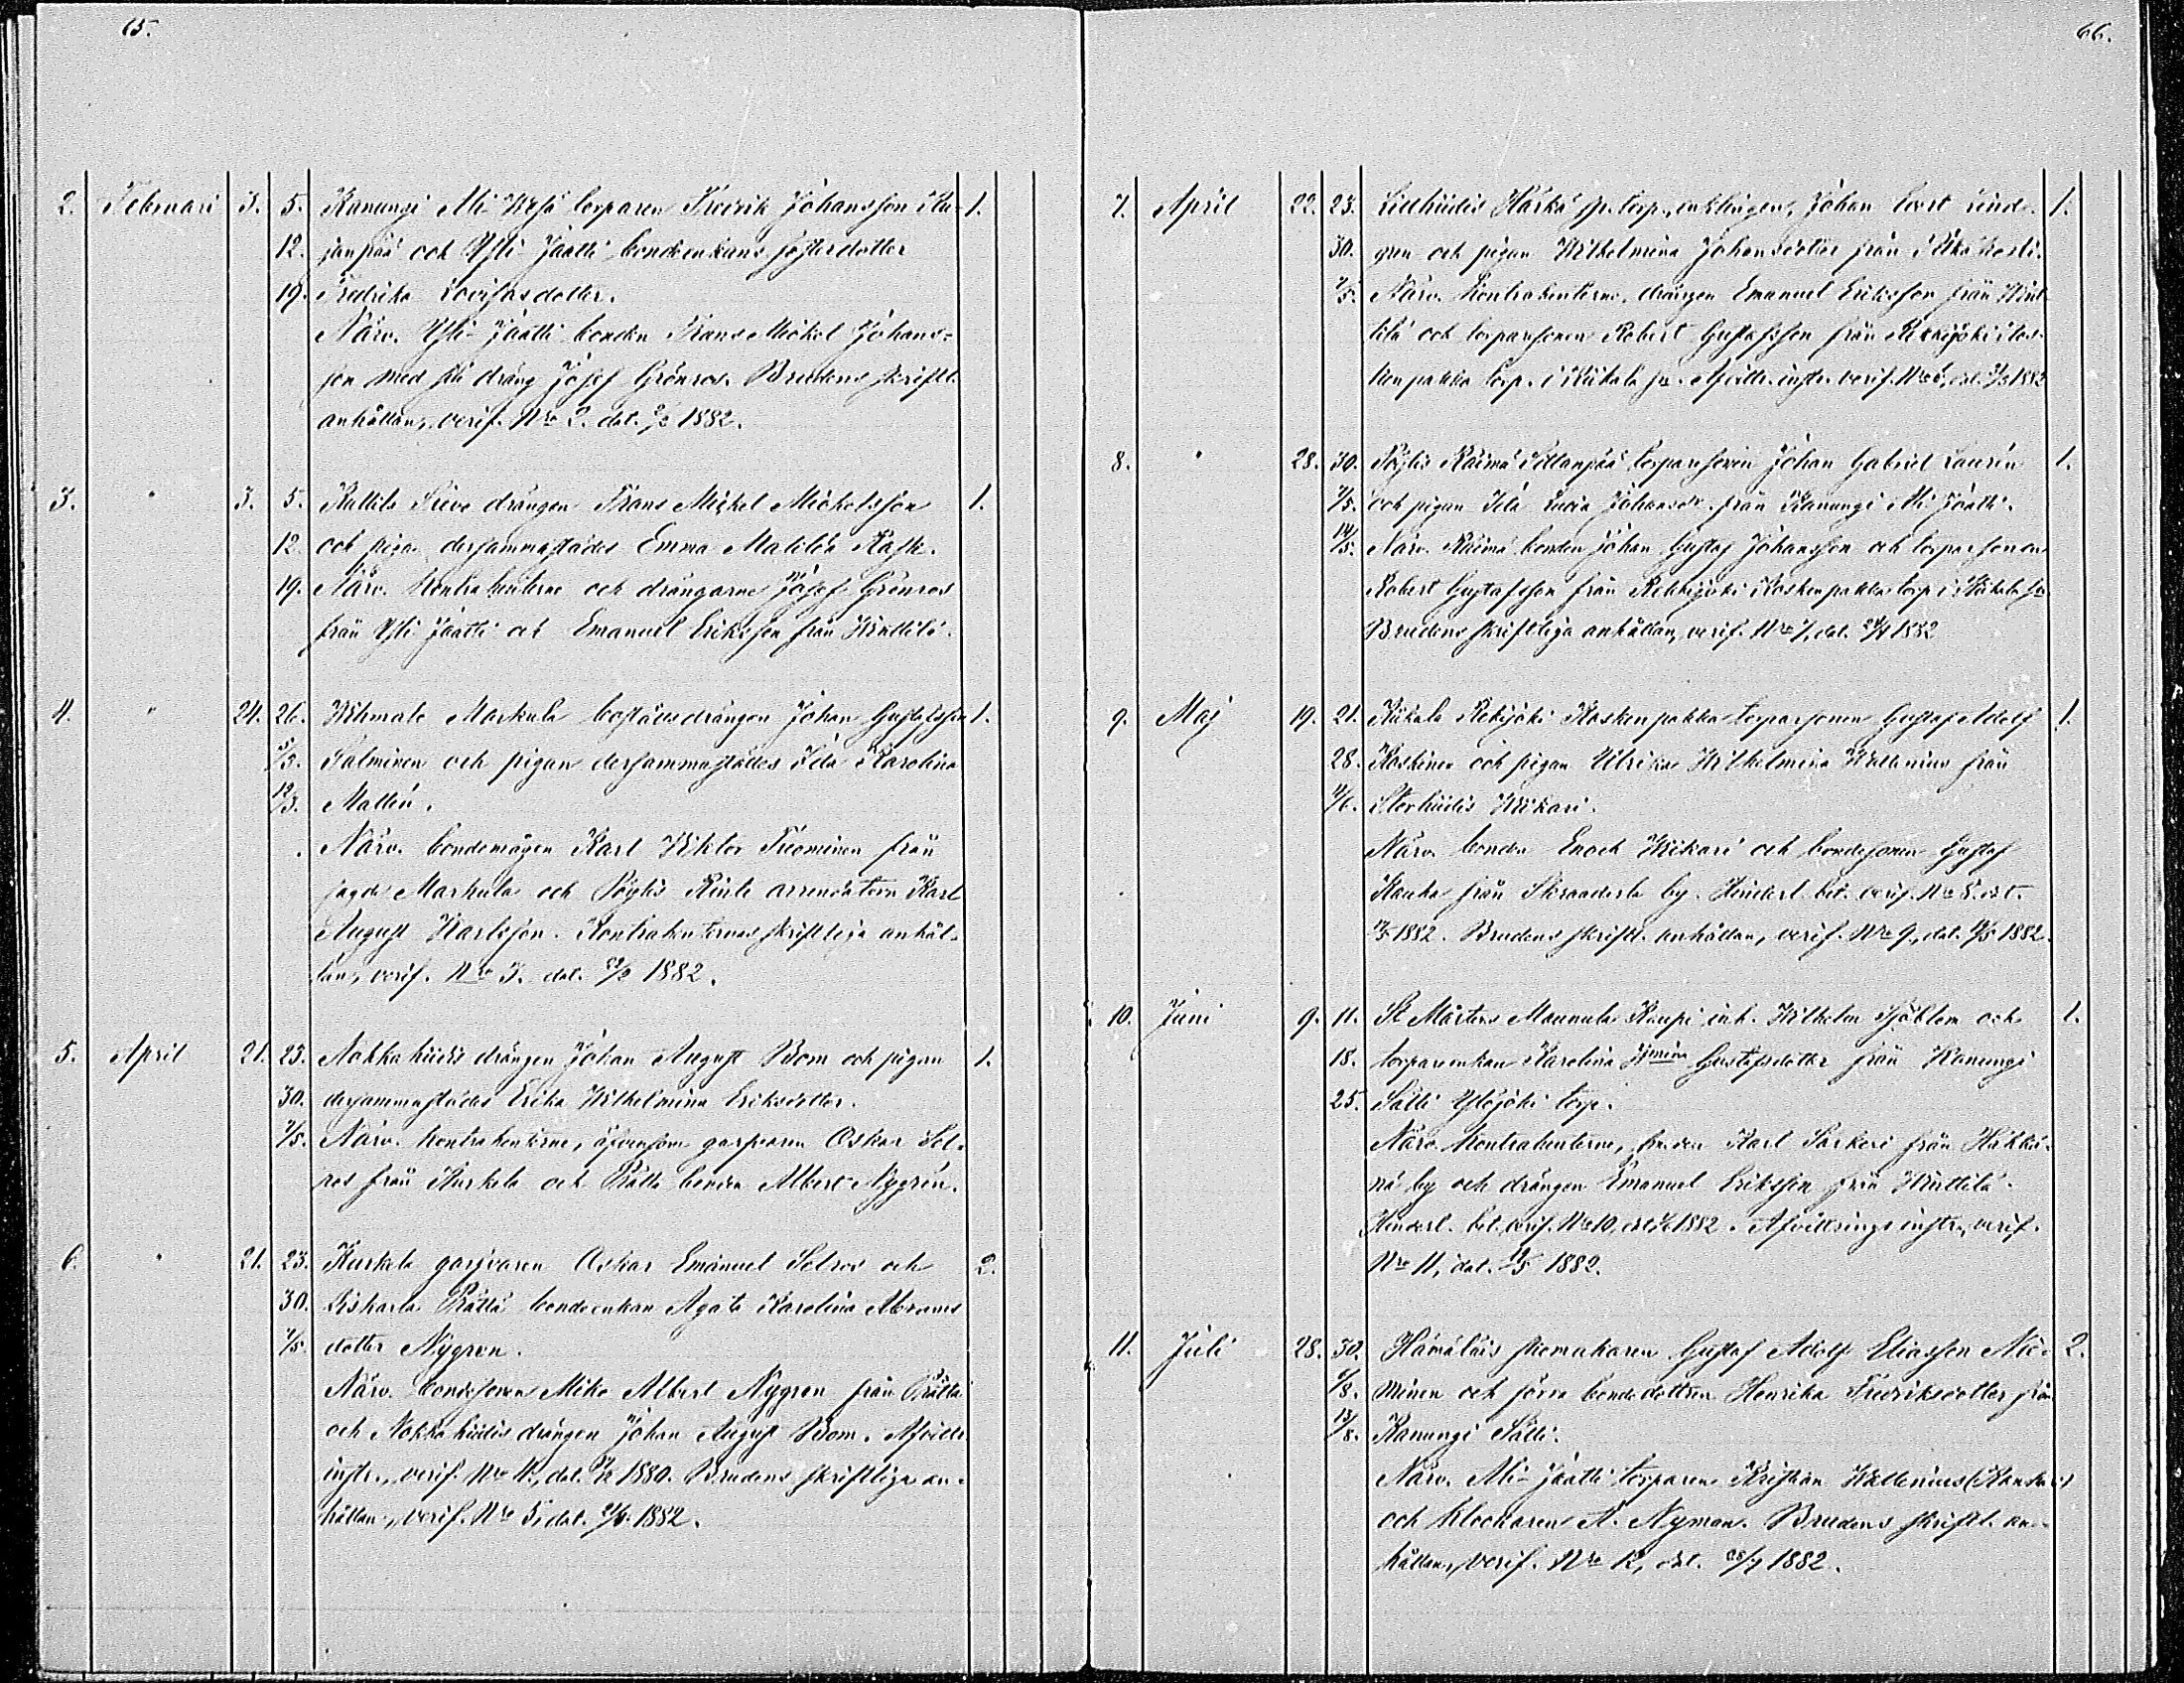 65.
2. Februari 3. 5. Kanungi Ali- torparen Fredrik Johansson i 1.
12. och Yli-Jaatti bondeenkans systerdotter
19. Fredrika Lovisasdotter.
Närv. Yli-Jaatti bonden Frans Mickel Johans-
son med dräng Josef Grönros. Brudens skriftl.
anhållan, verif. Nro 2. dat. 2/2 1882.
3. " 3. 5. Kallela drängen Frans Mickel Mickelsson 1.
12. och pigan dersammastädes Emma Matilda
19. Närv. Kontrahenterne och drängarne Josef Grönros
från Yli Jaatti och Emanuel Eriksson från Winttilä.
4. " 24. 26. Markula bostadsdrängen Johan Gustafsson 1.
5/3. Salminen och pigan dersammastädes Ida Karolina
12/3. Mallin.
Närv. bondemågen Karl Wiktor Tuominen från
sagde Markula och Pöytis arrendatorn Karl
August Karlsson. Kontrahenternas skriftliga anhål-
lan, verif. Nro 3. dat. 22/2 1882.
5. April 21. 23. Nokkahiidis drängen Johan August Bom och pigan 1.
30. dersammastädes Erika Wilhelmina Eriksdotter.
7/5. Närv. Kontrahenterne, äfvensom garfvaren Oskar Sol-
ros från Kurkela och Rätta bonden Albert Nygrén.
6. " 21. 23. Kurkela garfvaren Oskar Emanuel Solros och 2.
30. Liskarla Rättä bondeenkan Agata Karolina Abrams
7/5. dotter Nygren.
Närv. bondesonen Mike Albert Nygren från Rättä
och Nokkahiidis drängen Johan August Bom. Afvittr.
instr., verif. Nro 4., dat. 1880. Brudens skriftliga an-
hållan, verif. Nro 5, dat. 1882.
66.
7. April 22. 23. Lillhiidis Härkä torp. enklingen, Johan Lind- 1.
30. gren och pigan Wilhelmina Johansdotter från
7/5. Närv. Kontrahenterne, drängen Emanuel Eriksson från Wint-
tilä och torparsonen Robert Gustafsson från Rekkijoki Kos-
kenpakka torp. i Kiikala sn. Afvittr. instr. verif. Nro 6, dat. 1882
8. " 28. 30. Pöytis torparsonen Johan Gabriel Laurén 1.
7/5. och pigan Ida Johansdr. från Kanungi Ali Jaatti.
14/5. Närv. bonden Johan Gustaf Johansson och torparsonen
Robert Gustafsson från Rekkijoki Koskenpakka torp i Kiikala sn
Brudens skriftliga anhållan, verif. Nro 7, dat. 28/4 1882
9. Maj 19. 21. Kiikala Rekijoki Koskenpakka torparsonen Gustaf Adolf 1.
28. Koskinen och pigan Ulrika Wilhelmina Wallenius från
4/6. Storhiidis Wikari.
Närv. bonden Enoch Wikari och bondesonen Gustaf
från by. Hinderl. bet. verif. Nro 8. dat.
1882. Brudens skriftl. anhållan, verif. Nro 9., dat. 1882.
10. Juni 9. 11. St Mårtens Maunula inh. Wilhelm Sjöblom och 1.
18. torpareenkan Karolina Gustafsdotter från Kanungi
25. Sälli Ylöjoki torp.
Närv. Kontrahenterne, bonden Karl Sarkeri från
by och drängen Emanuel Eriksson från Winttilä.
Hinderl. bet. verif. Nro 10, dat. 1882. Afvittrings instr., verif.
Nro 11, dat. 1882.
11. Juli 28. 30. Hämäläis skomakaren Gustaf Adolf Eliasson 2.
6/8. minen och förra bondedottren Henrika Fredriksdotter från
13/8. Kanungi Sälli.
Närv. Ali-Jaatti torparen Kristian Wallenius
och klockaren A. Nyman. Brudens skriftl. an-
hållan, verif. Nro 12, dat. 28/7 1882.